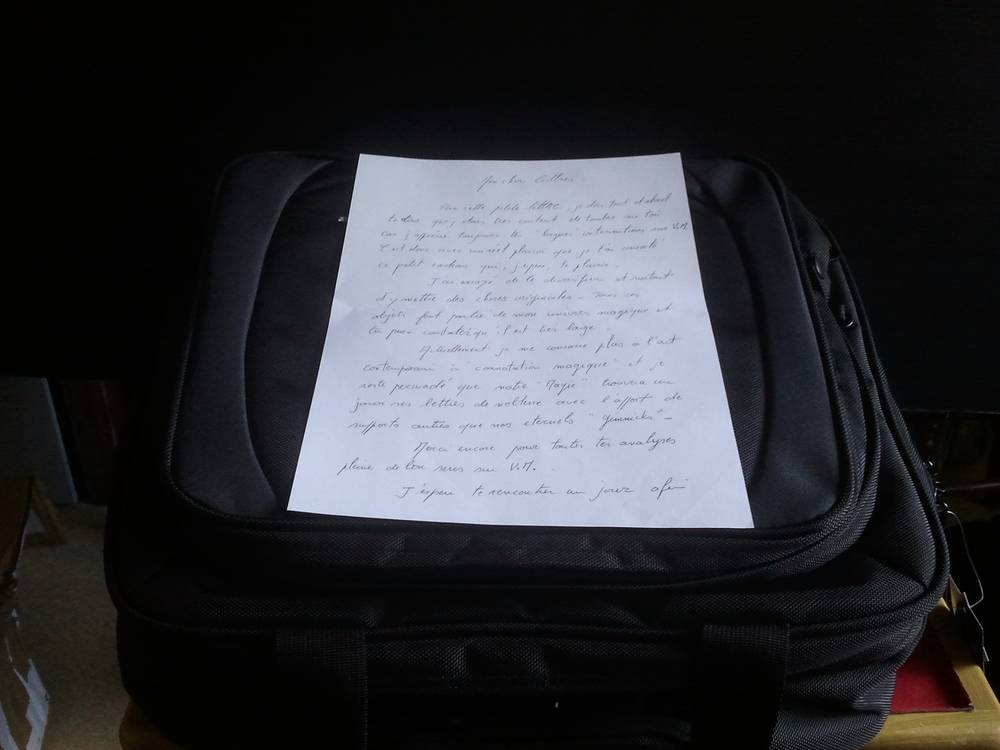 Mon cher
Par cette petite lettre, je dois tout d'abord
te dire que j'étais très content de toutes
car j'apprécie toujours tes longues interventions sur V.M.
C'est donc avec un réel plaisir que je t'ai
ce petit cadeau qui, j'espère, te plaira.
J'ai essayé de le diversifier et surtout
d'y mettre des choses originales - Tous ces
objets font partie de mon univers magique et
tu peux constater qu'il est très large.
Actuellement je me consacre plus à l'art
contemporain à "connotation magique" et je
reste persuadé que notre "Magie" trouvera un
jour ses lettres de noblesse avec l'apport de
supports autres que nos éternels "gimmicks" -
Merci encore pour toutes tes analyses
pleines de bon sens sur V.M.
J'espère te rencontrer un jour afin